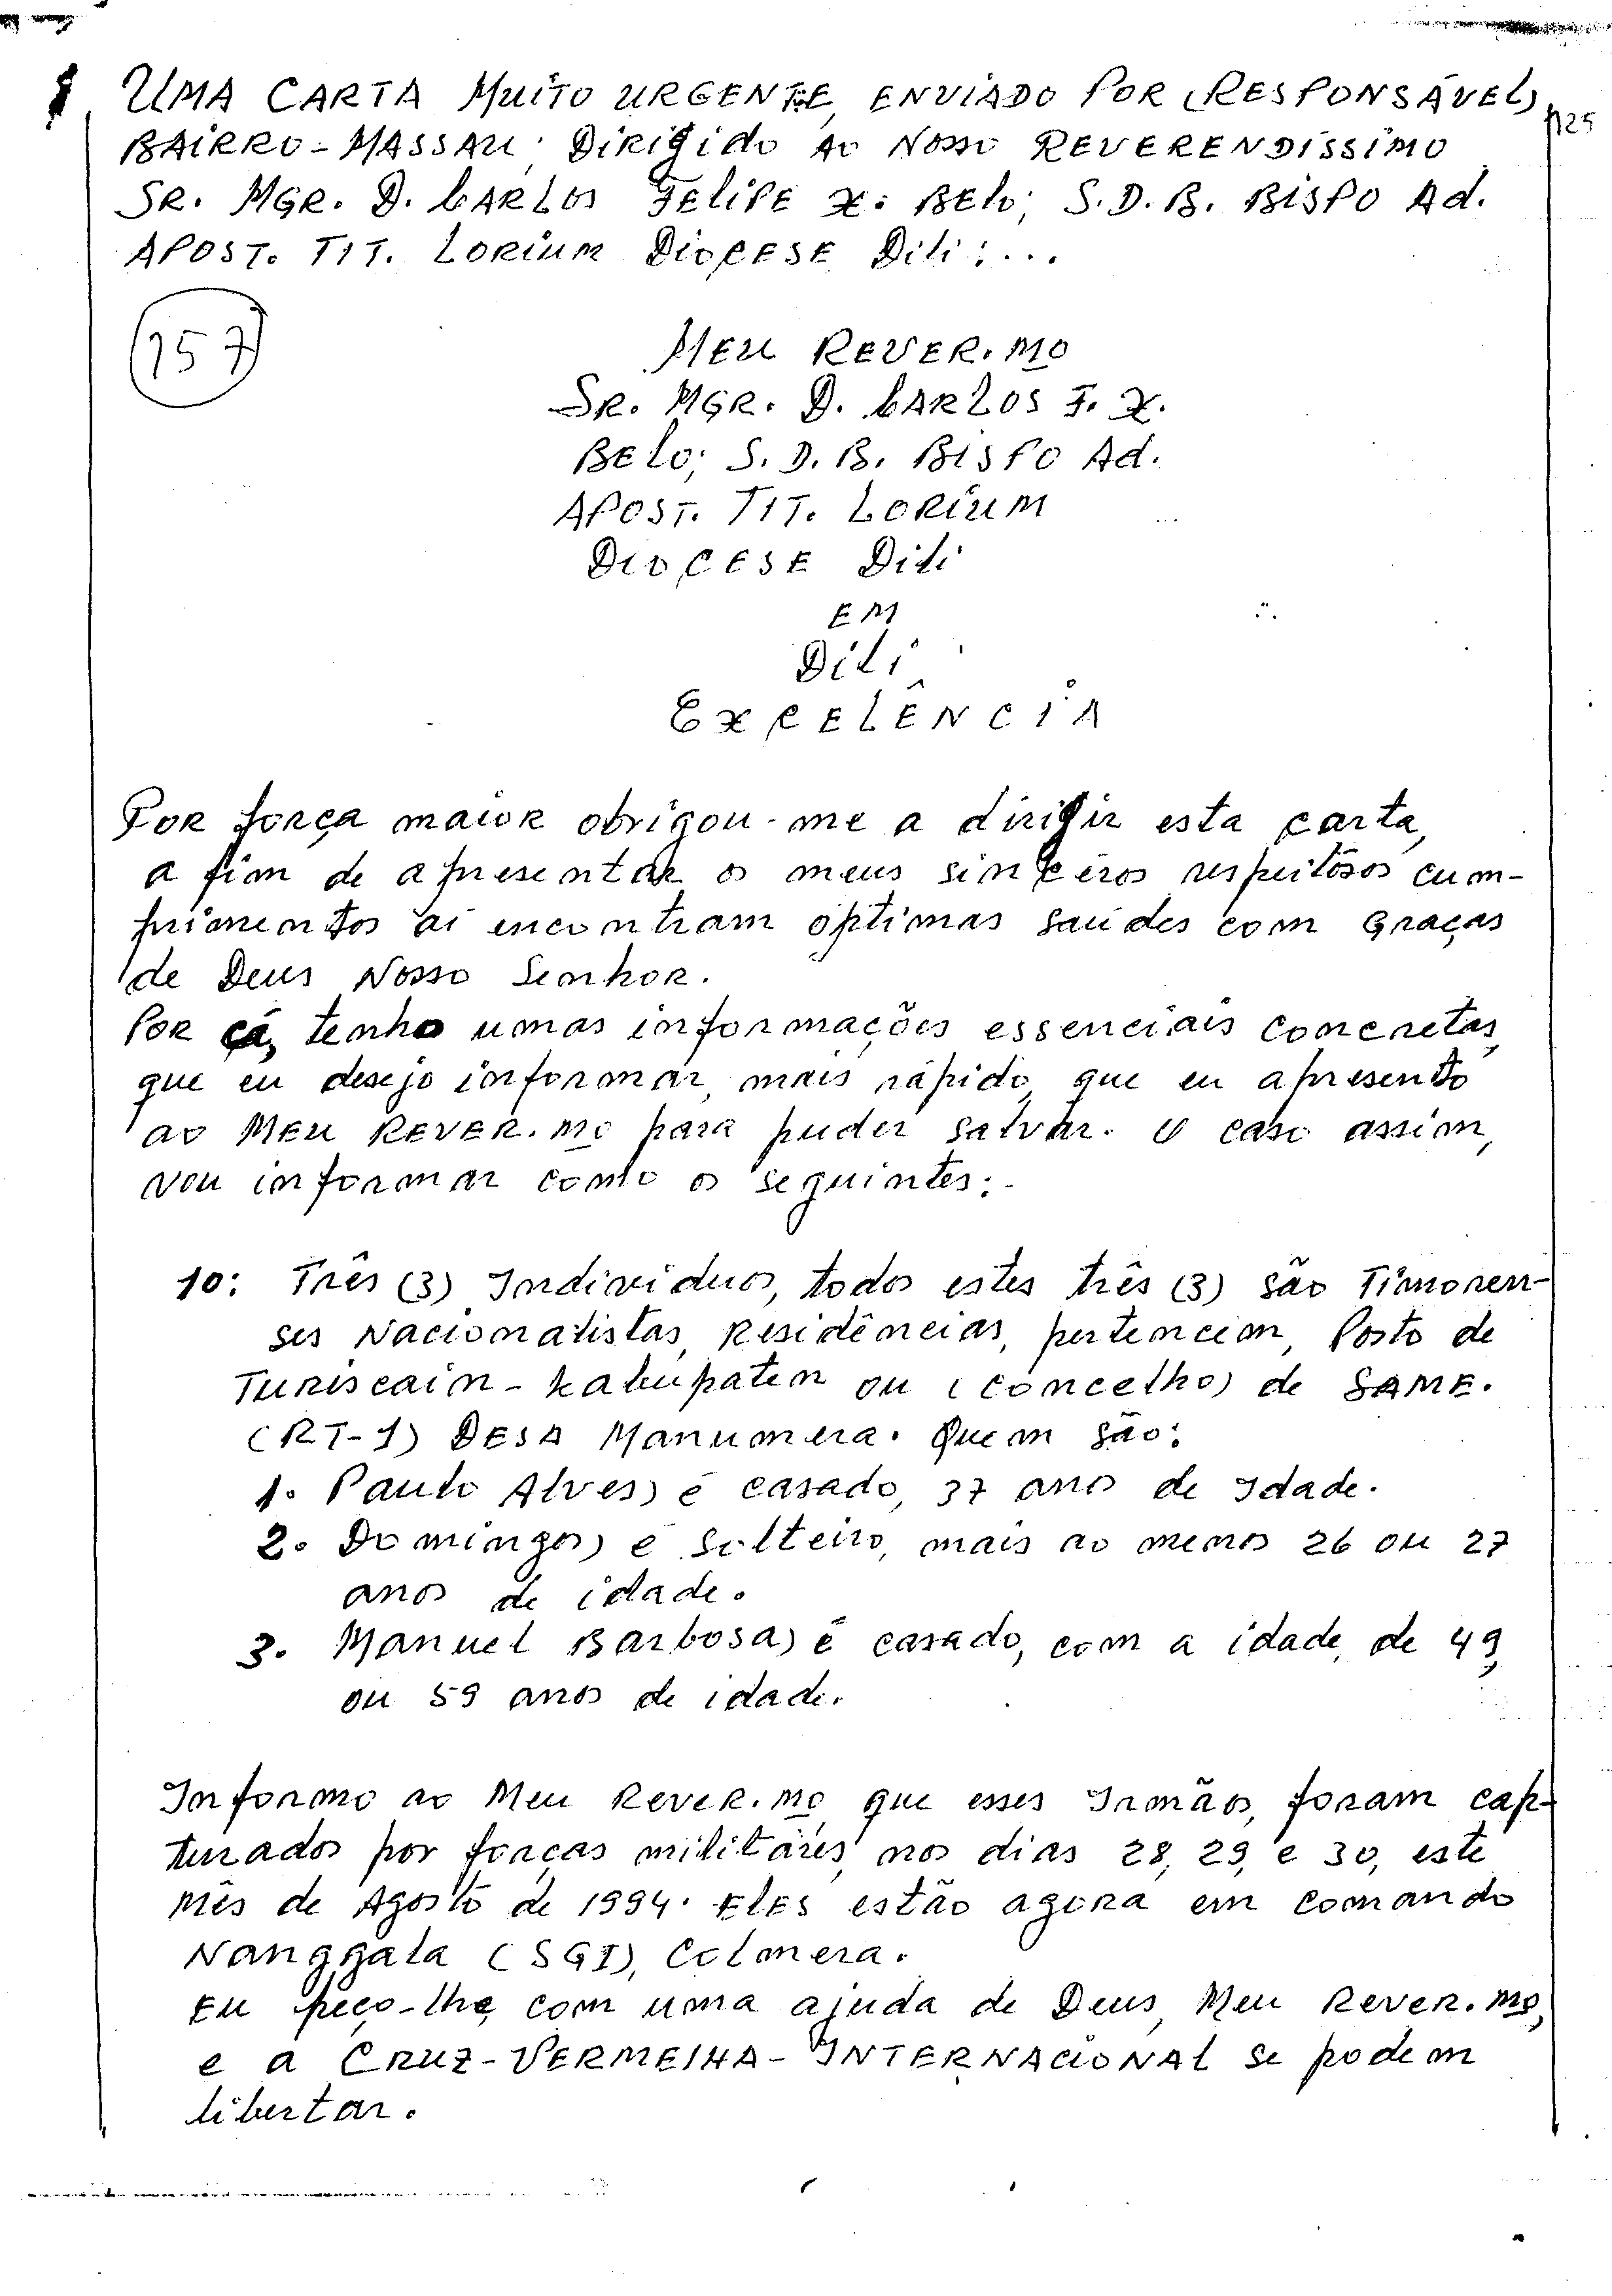 UMA CARTA MUITO URGENTE, ENVIADO POR (RESPONSÁVEL)
125
BAIRRO - MASSAU. DIRIGIDO AO NOSSO REVERENDÍSSIMO
SR. MGR. D. CARLOS FELIPE X. BELO; S.D.B. BISPO Ad.
APOST. TIT. LORIUM DIOCESE Dili; ...
157
MEU REVER.MO
SR. MGR. D. CARLOS F. X.
BELO; S. D. B. BISPO Ad.
APOST. TIT. LORIUM
DIOCESE Dili
EM
Dili
EXCELÊNCIA
Por força maior obrigou-me a dirigir esta carta,
a fim de apresentar os meus sincéros respeitósos cum-
primentos aí encontram óptimas saúdes com Graças
de Deus Nosso Senhor.
Por cá, tenho umas informações essenciais concretas,
que eu desejo informar, mais rápido, que eu apresento
ao MEU REVER.MO para puder salvar. O caso assim,
vou informar como os seguintes:.
10: Três (3) Individuos, todos estes três (3) são Timoren-
ses Nacionalistas, Residências, pertenciam, Posto de
Turiscain - kabupaten ou (concelho) de SAME.
(RT-1) DESA Manumera. Quem são:
1. Paulo Alves) é casado, 37 anos de Idade.
2. Domingos) é solteiro, mais ao menos 26 ou 27
anos de idade.
3. Manuel Barbosa) é casado, com a idade, de 49,
ou 59 anos de idade.
Informo ao Meu Rever.mo que esses Irmãos, foram cap-
turados por forças militáres, nos dias 28, 29, e 30, este
mês de Agosto de 1994. ELES estão agora em comando
Nanggala (SGI), Colmera.
Eu peço-lhe, com uma ajuda de Deus, Meu Rever.mo,
e a CRUZ-VERMELHA-INTERNACIONAL se podem
libertar.